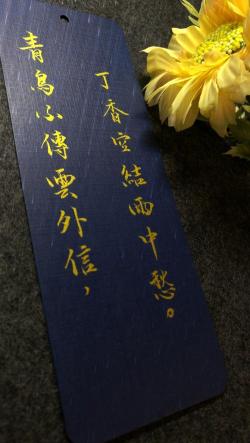 青鳥不傳雲外信，
丁香空結雨中愁。